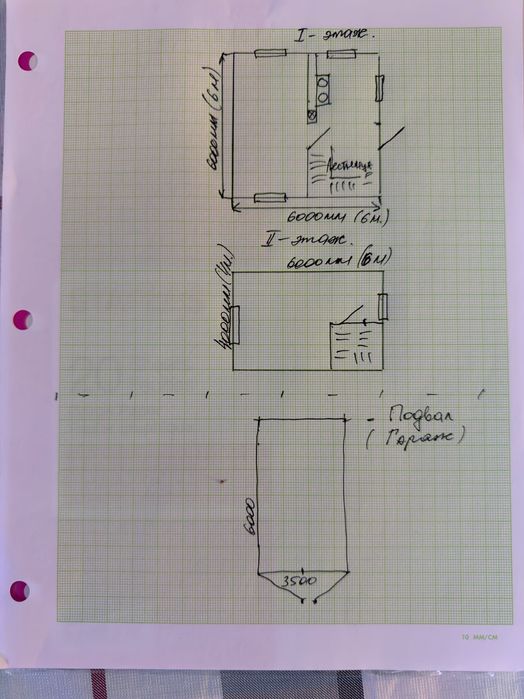 I - этаж.
6000мм (6 м)
Лестница
6000мм (6м.
II - этаж.
6000мм (6 м)
4000мм (4м)
- Подвал
( Гараж )
6000
3500
10 MM/CM